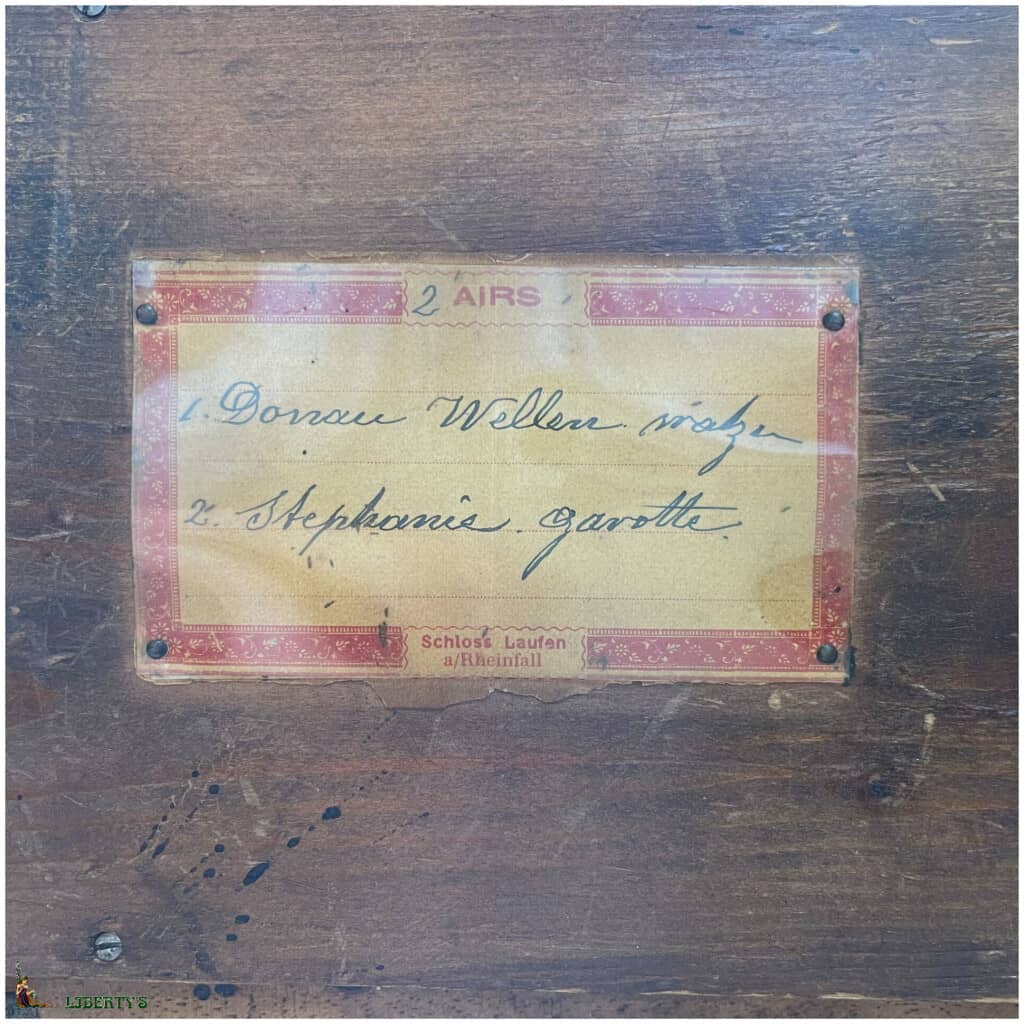 2 AIRS
1. Donau Wellen walzer
2. Stephanie gavotte
Schloss Laufen
a/Rheinfall
LIBERTY'S